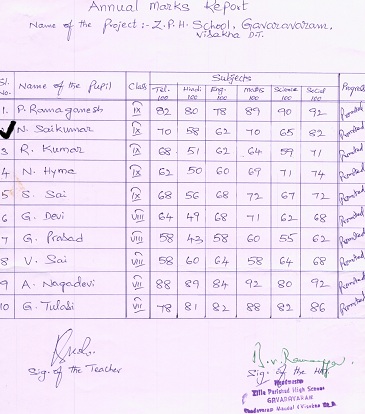 Annual Marks Report
Name of the Project :- Z.P.H. School, Gavaravaram,
Visakha DT.
Sl. No. Name of the Pupil Class Subjects Progress
Tel. 100 Hindi 100 Eng. 100 Maths 100 Science 100 Social 100
1. P. Ramaganesh IX 82 80 78 89 90 92 Promoted
N. Saikumar IX 70 58 62 70 65 82 Promoted
3 R. Kumar IX 68 51 62 64 59 71 Promoted
4 N. Hyma IX 62 50 60 69 71 74 Promoted
5 S. Sai IX 68 56 68 72 67 72 Promoted
6 G. Devi VIII 64 49 68 71 62 68 Promoted
7 G. Prasad VIII 58 43 58 60 55 62 Promoted
8 V. Sai VIII 58 60 64 58 64 68 Promoted
9 A. Nagadevi VII 88 89 84 92 80 92 Promoted
10 G. Tulasi VII 78 81 82 88 82 86 Promoted
Sig. of the Teacher
Sig. of the HM
Headmaster
Zilla Parishad High School
GAVARAVARAM